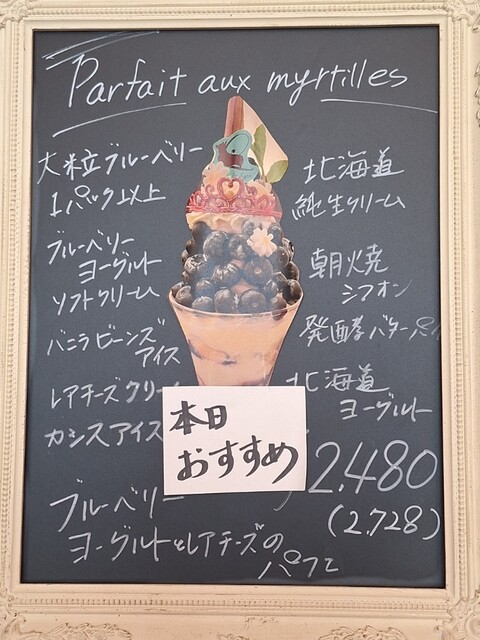 Parfait aux myrtilles
大粒ブルーベリー
1パック以上
ブルーベリー
ヨーグルト
ソフトクリーム
バニラビーンズ
アイス
レアチーズクリー
カシスアイス
北海道
純生クリーム
朝火焼
シフォン
発酵バターパイ
北海道
ヨーグルト
本日
おすすめ
2,480
(2,728)
ブルーベリー
ヨーグルトとレアチーズの
パフェ